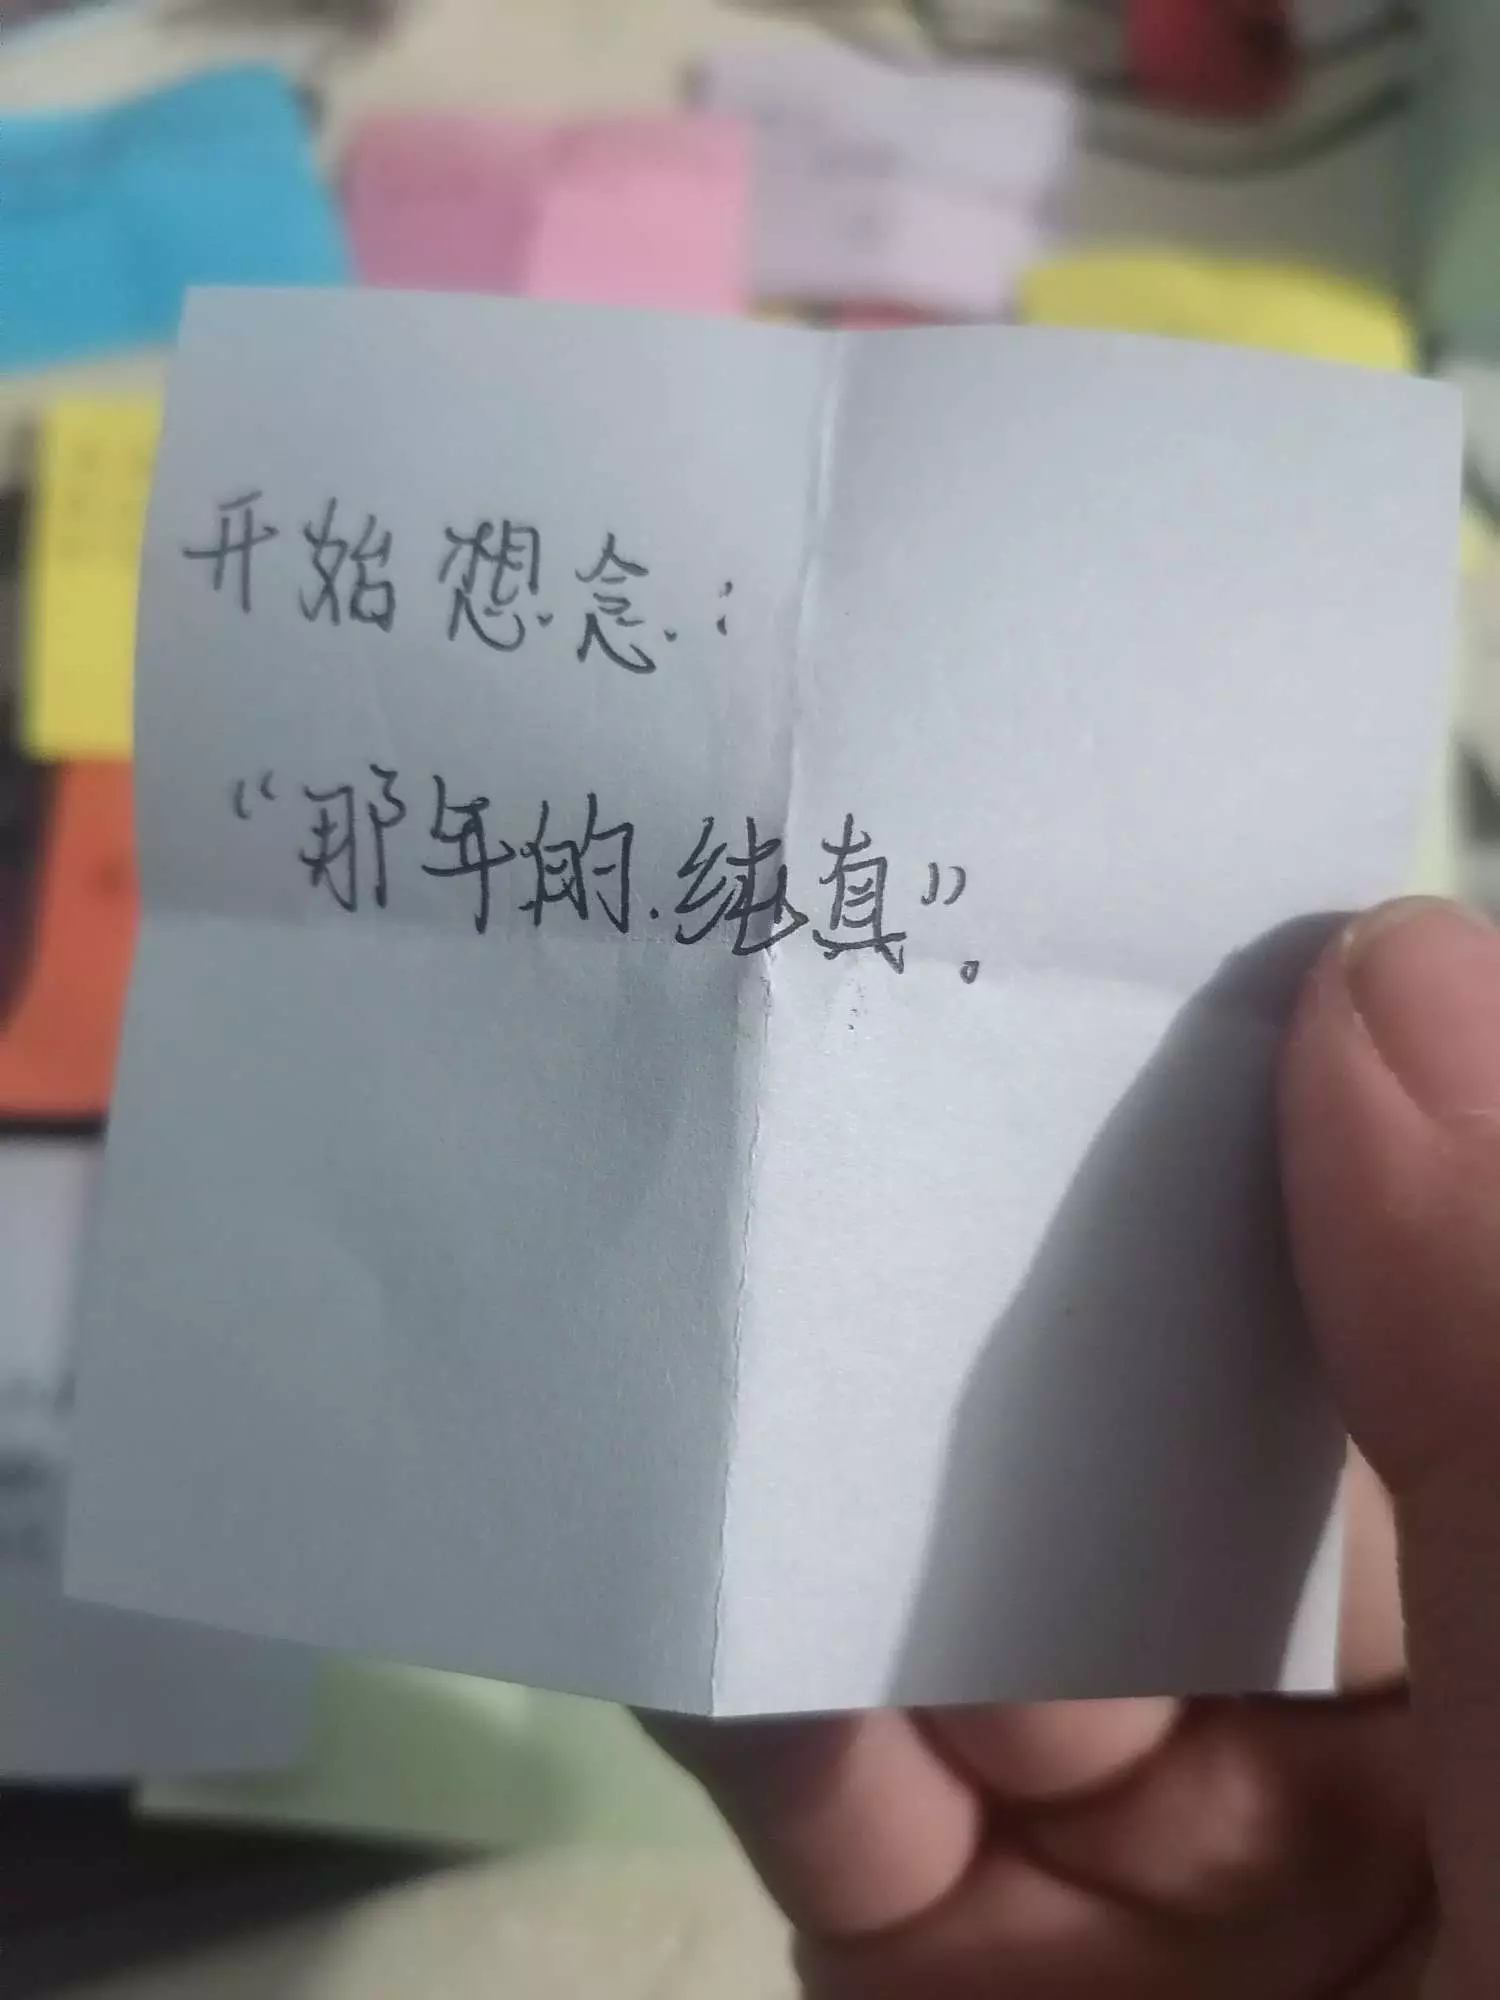 开始想念：
“那年的纯真”。